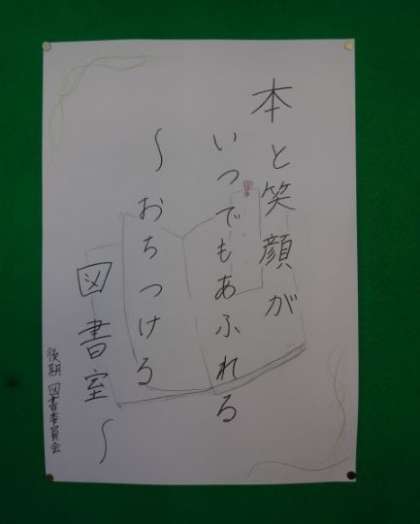 本と笑顔が
いつでもあふれる
～おちつける
図書室～
後期 図書委員会